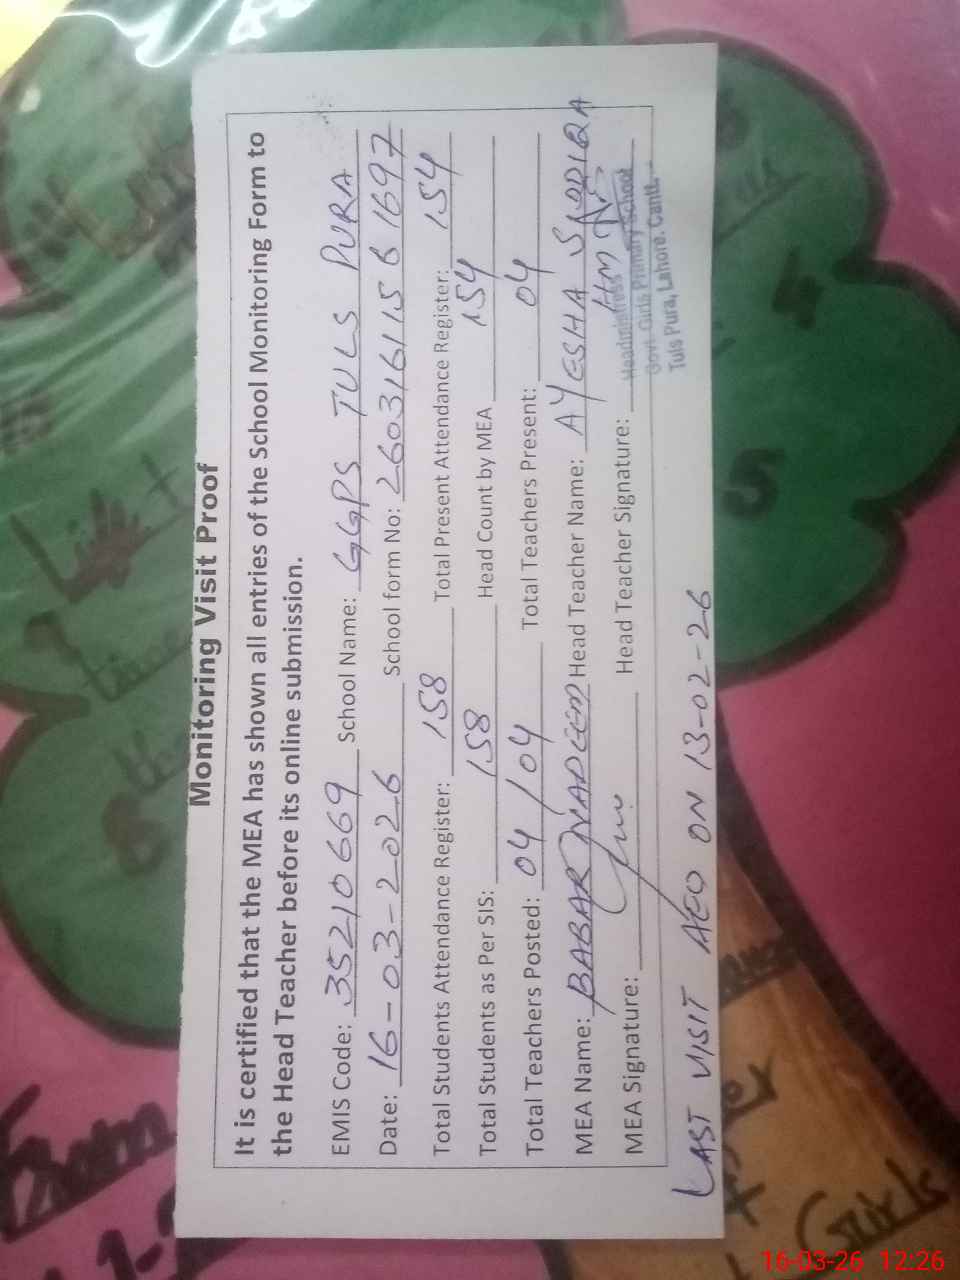 Monitoring Visit Proof
It is certified that the MEA has shown all entries of the School Monitoring Form to
the Head Teacher before its online submission.
EMIS Code: 35210669 School Name: GGPS TULS PURA
Date: 16-03-2026 School form No: 260316115B1697
Total Students Attendance Register: 158 Total Present Attendance Register: 154
Total Students as Per SIS: 158 Head Count by MEA 154
Total Teachers Posted: 04/04 Total Teachers Present: 04
MEA Name: BABAR NADEEM Head Teacher Name: AYESHA SADIQA
MEA Signature: Head Teacher Signature: HM
Headmistress
Govt. Girls Primary School
Tuls Pura, Lahore. Cantt.
LAST VISIT AEO ON 13-02-26
From
List
4
5
Girls
16-03-26 12:26